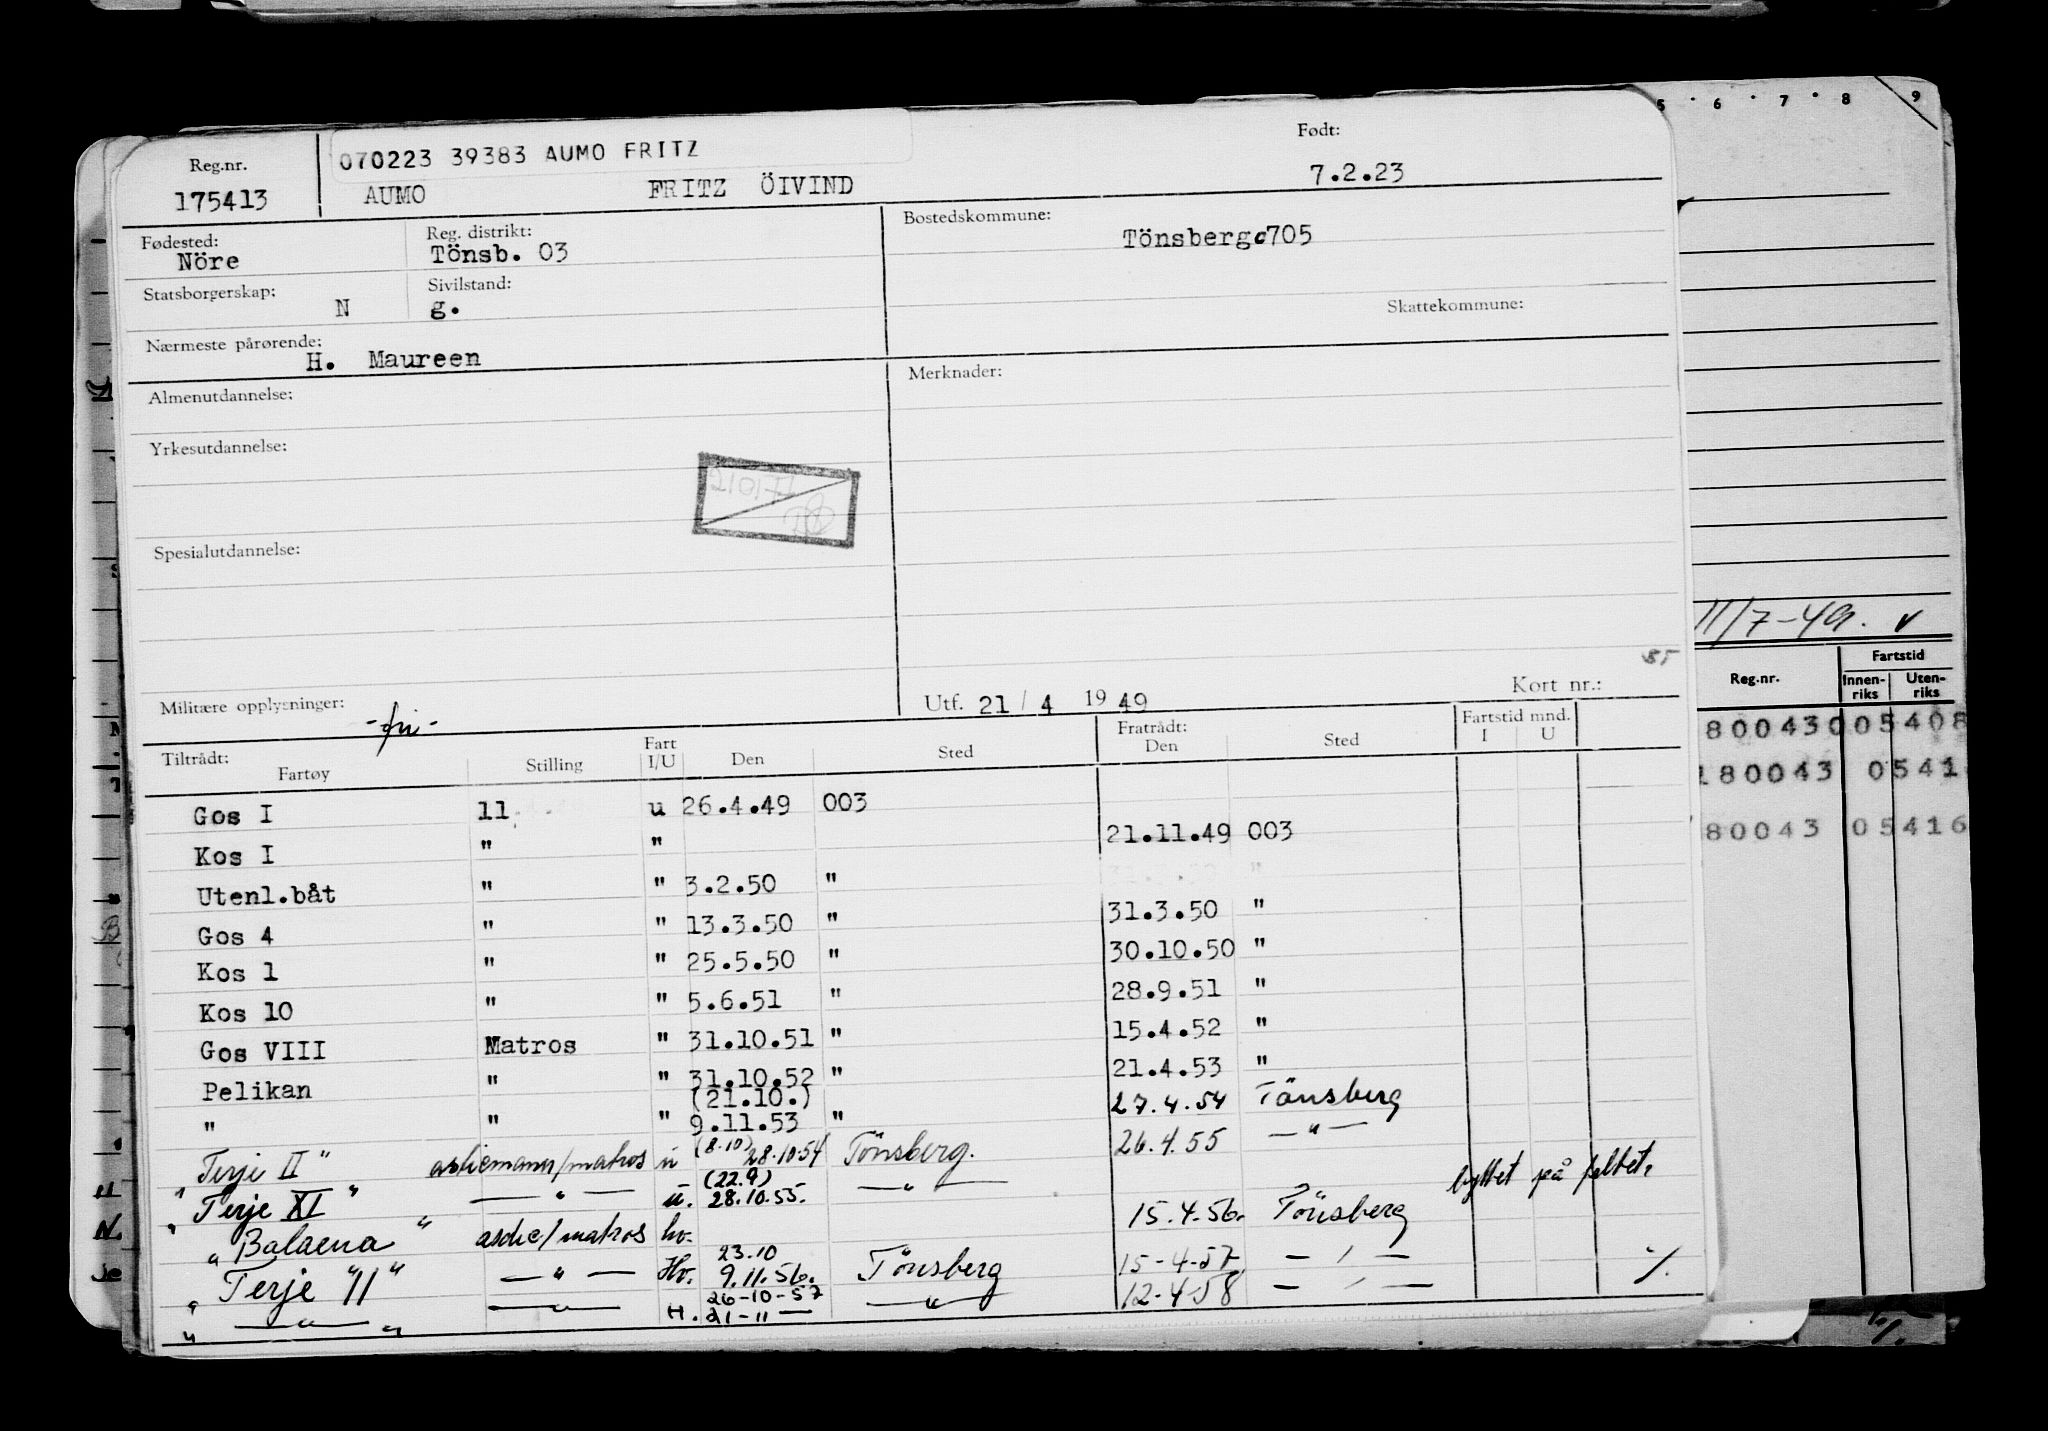 5 · 6 · 7 · 8 9
070223 39383 AUMO FRITZ
Reg.nr. Født:
175413 AUMO FRITZ ÖIVIND 7.2.23
Fødested: Reg. distrikt: Bostedskommune:
Nöre Tönsb. 03 Tönsberg 705
Statsborgerskap: Sivilstand:
N g. Skattekommune:
Nærmeste pårørende:
H. Maureen
Almenutdannelse: Merknader:
Yrkesutdannelse:
Spesialutdannelse:
11/7-49. v
Militære opplysninger: -fri- Utf. 21/4 1949 Kort nr.:
Tiltrådt: Fratrådt: Fartstid mnd.
Fartøy Stilling Fart I/U Den Sted Den Sted I U
Gos I 11 u 26.4.49 003
Kos I " " 21.11.49 003
Utenl.båt " " 3.2.50 "
Gos 4 " " 13.3.50 " 31.3.50 "
Kos 1 " " 25.5.50 " 30.10.50 "
Kos 10 " " 5.6.51 " 28.9.51 "
Gos VIII Matros " 31.10.51 " 15.4.52 "
Pelikan " " 31.10.52 " 21.4.53 "
(21.10.)
" " " 9.11.53 " 27.4.54 Tönsberg
"Terje II" /matros u (8.10) 28.10.54 Tönsberg. 26.4.55 — " —
(22.9)
"Terje XI" — " — u. 28.10.55. — " — byttet på feltet.
"Balaena" /matros hv. 15.4.56. Tönsberg
23.10
"Terje "11" — " — Hv. 9.11.56. Tönsberg 15-4-57 — " —
26-10-57
" — " — " — " — H. 21-11 — — " — 12-4-58 — " — %
Reg.nr. Fartstid
Innen-riks Uten-riks
8004300 05408
180043 0541
80043 05416